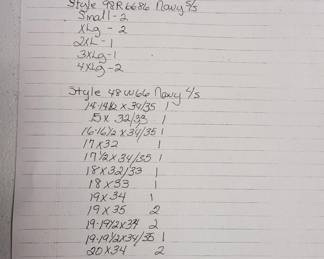 Style 98R6686 Navy S/S
Small - 2
XLg - 2
2XL - 1
3XLg - 1
4XLg - 2
Style 48W66 Navy L/S
14-14½ x 34/35 1
15 x 32/33 1
16-16½ x 34/35 1
17 x 32 1
17½ x 34/35 1
18 x 32/33 1
18 x 33 1
19 x 34 1
19 x 35 2
19-19½ x 34 2
19-19½ x 34/35 1
20 x 34 2